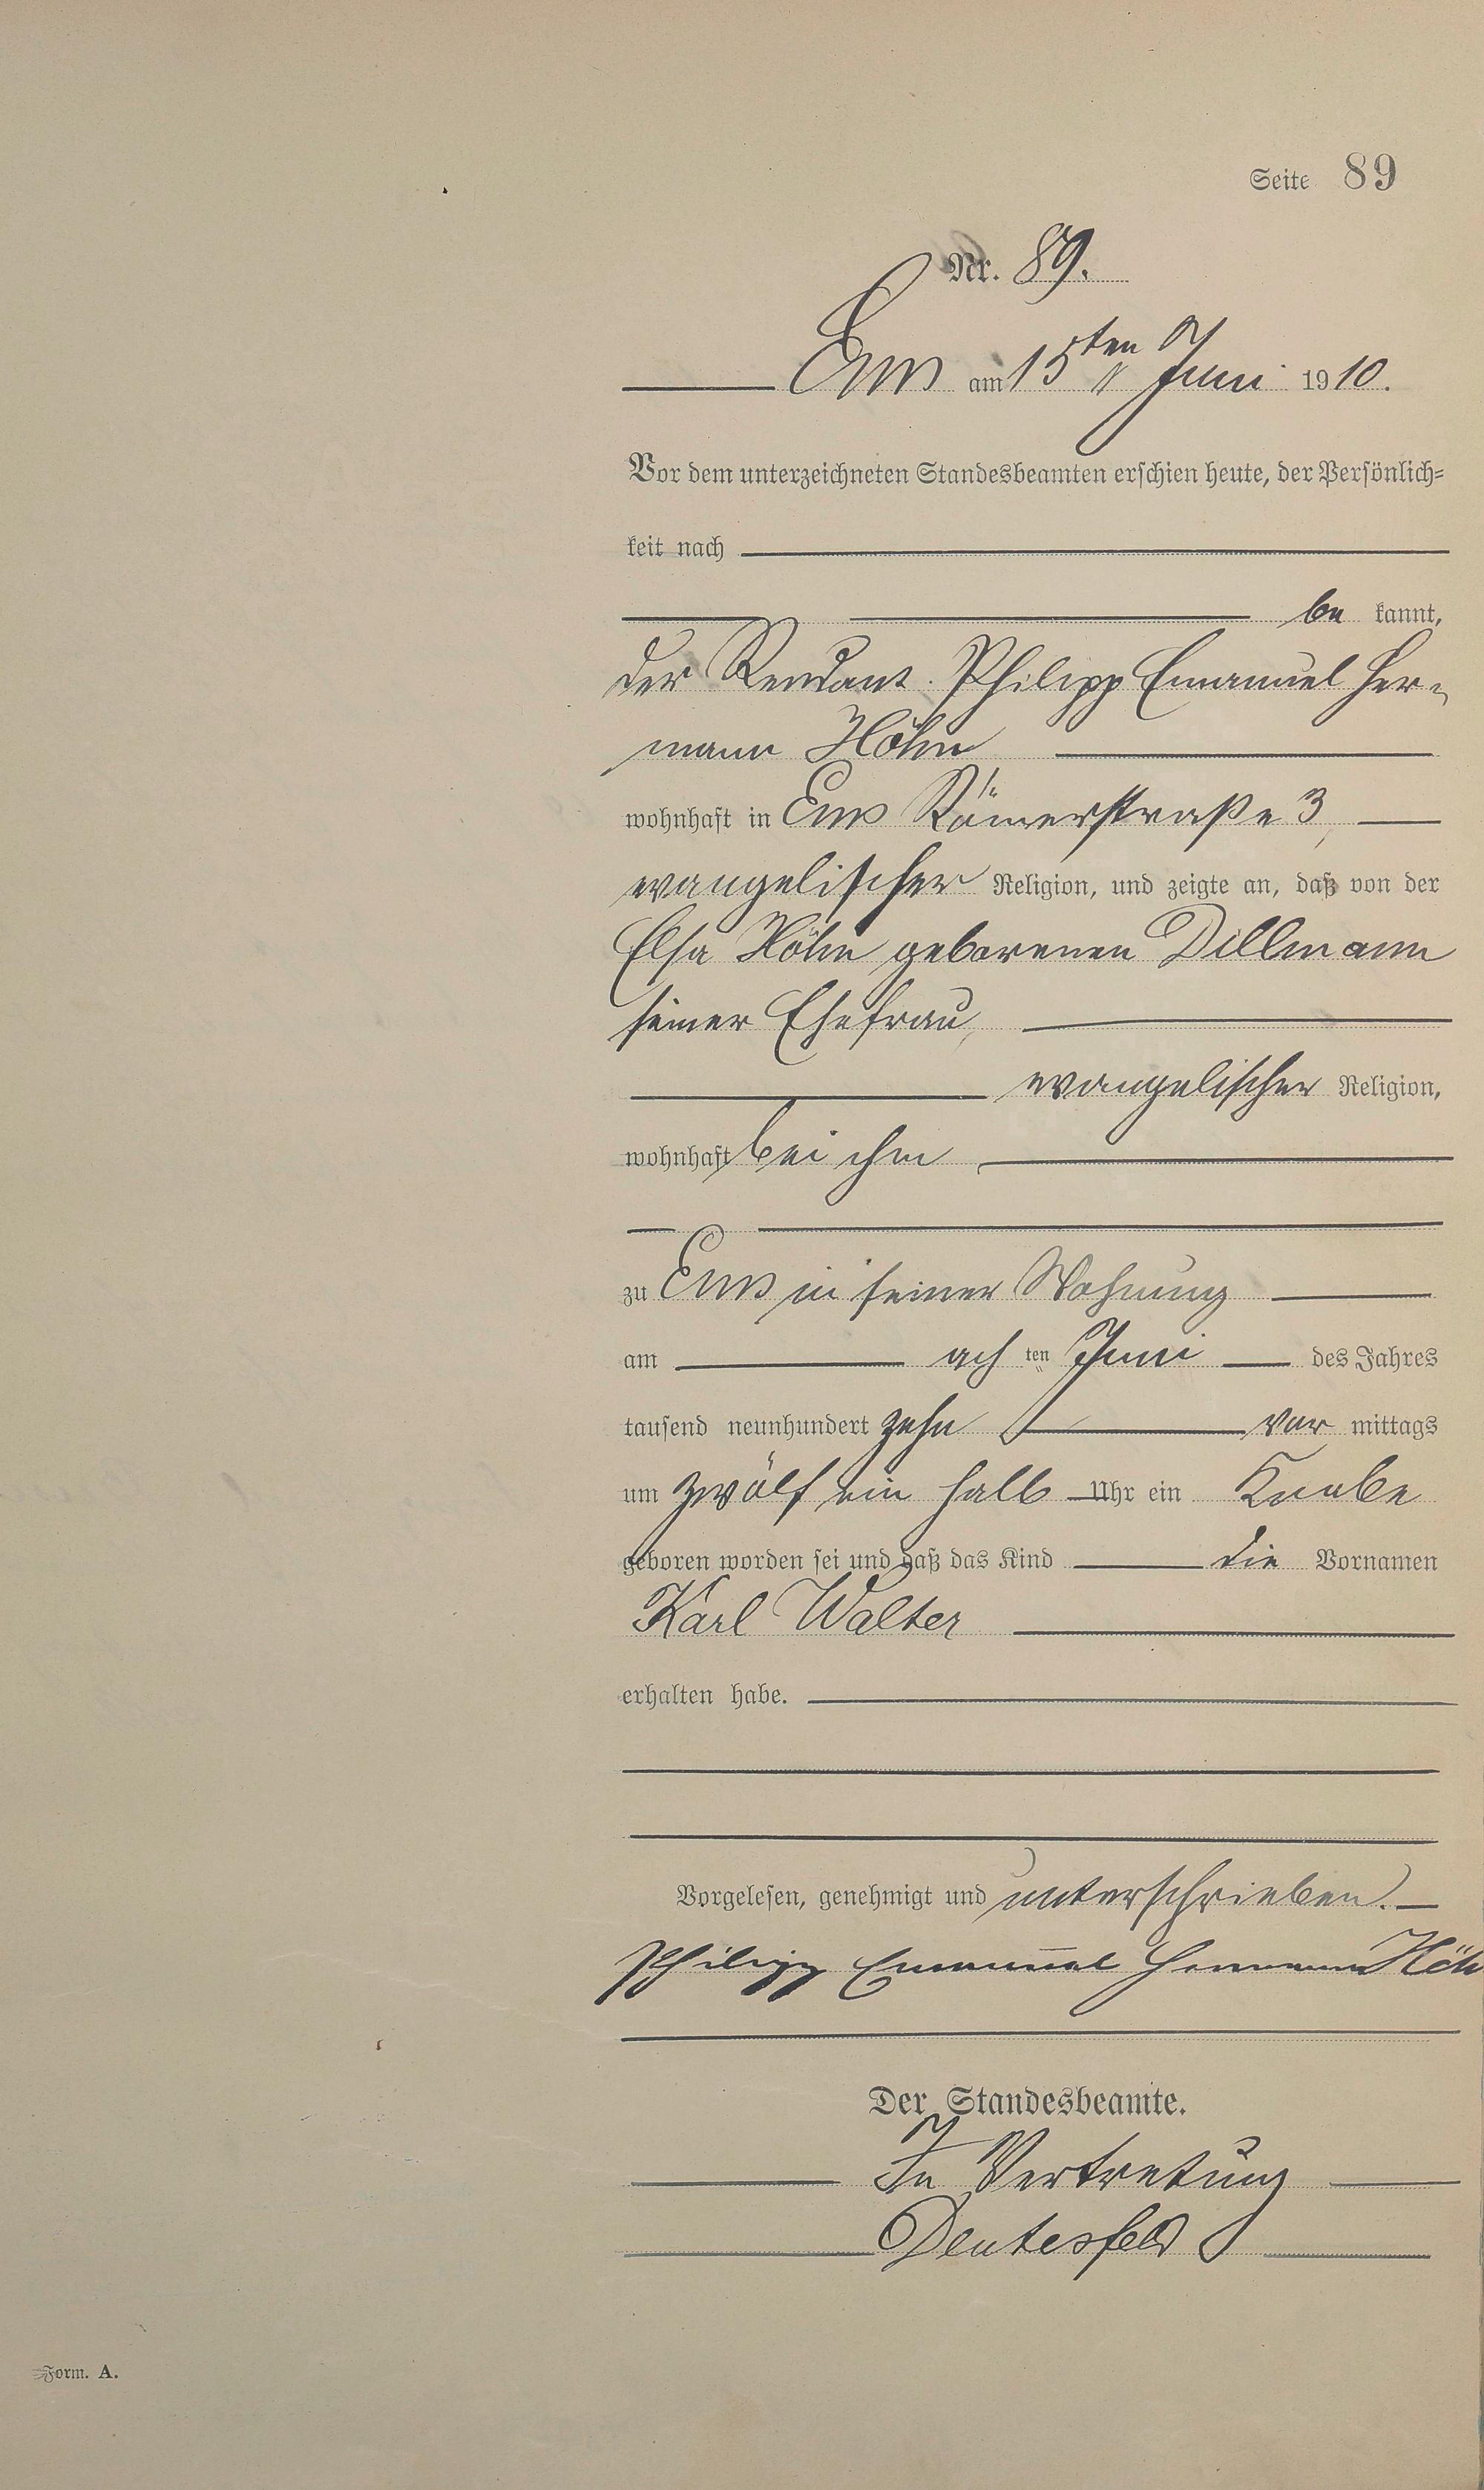 Seite 89
Nr. 89.
Ems am 15ten Juni 1910.
Vor dem unterzeichneten Standesbeamten erschien heute, der Persönlich-
keit nach
be kannt,
der Rendant Philipp Emanuel Her-
mann Höhn
wohnhaft in Ems Römerstraße 3,
evangelischer Religion, und zeigte an, daß von der
Elsa Höhn geborenen Dillmann
seiner Ehefrau,
evangelischer Religion,
wohnhaft bei ihm
zu Ems in seiner Wohnung
am ach ten Juni des Jahres
tausend neunhundert zehn vor mittags
um zwölf ein halb Uhr ein Knabe
geboren worden sei und daß das Kind die Vornamen
Karl Walter
erhalten habe.
Vorgelesen, genehmigt und unterschrieben.
Philipp Emanuel Hermann Höhn
Der Standesbeamte.
In Vertretung
Form. A.